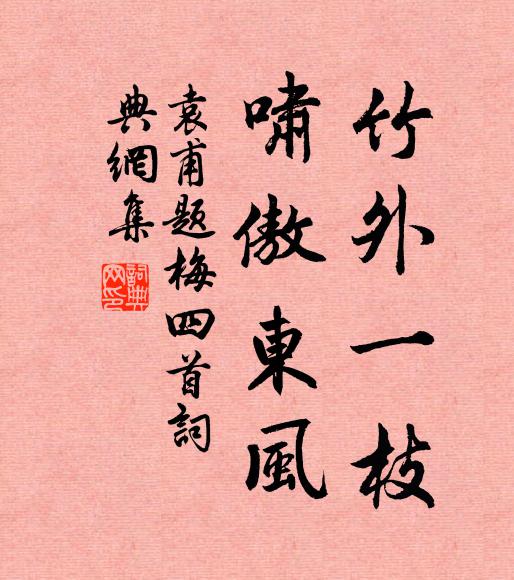 竹外一枝
嘯傲東風
袁甫題梅四首詞
典網集
詞典
网印